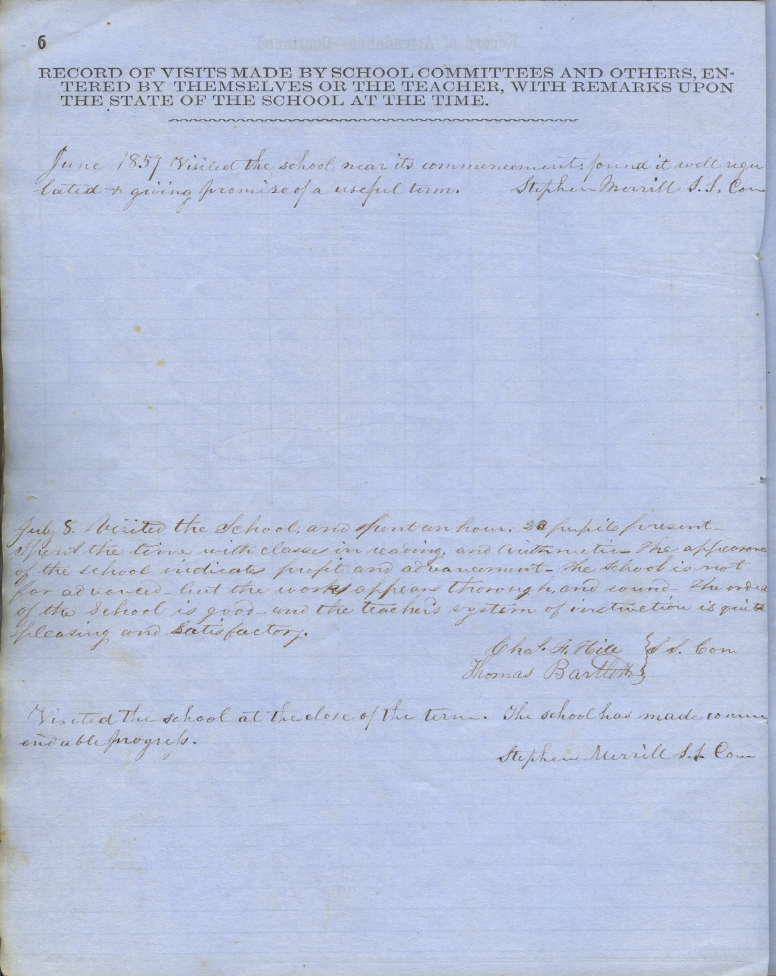 6
RECORD OF VISITS MADE BY SCHOOL COMMITTEES AND OTHERS, EN-
TERED BY THEMSELVES OR THE TEACHER, WITH REMARKS UPON
THE STATE OF THE SCHOOL AT THE TIME.
June 1857 Visited the school near its commencement; found it well regu
lated & giving promise of a useful term. Stephen Merrill S.S. Com
July 8. Visited the School, and spent an hour. pupils present-
spent the time with classes in reading, and arithmetic- The appearance
of the school indicates profit and advancement- The school is not
far advanced- but the works appears thorough, and sound- The order
of the School is good- and the teacher's system of instruction is quite
pleasing and satisfactory.
Chas. F. Hill } S.S. Com
Thomas Bartlett
Visited the school at the close of the term. The school has made comm
endable progress.
Stephen Merrill S.S. Com